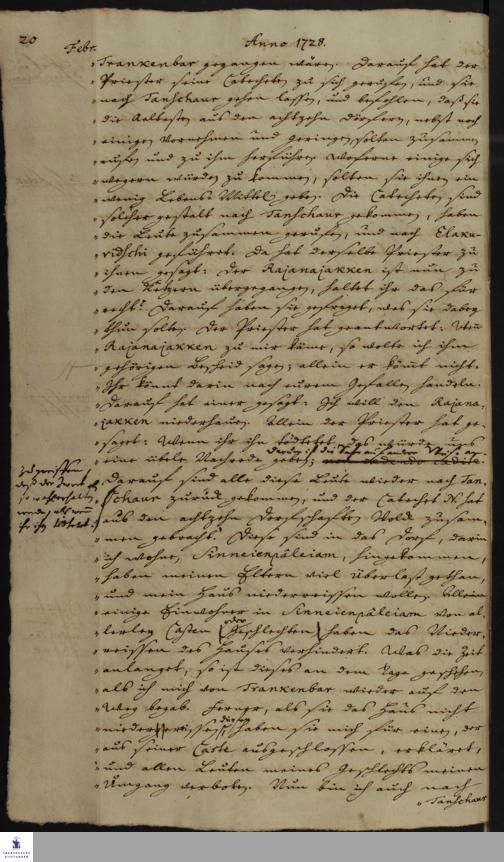 20
Febr. Anno 1728.
Trankenbar gegangen wären. Darauf hat der
Priester seine Catecheten zu sich gerufen, und sie
nach Tanschaur gehen lassen, und befohlen, daß sie
die Aeltesten aus den achtzehn Dörfern, nebst noch
einigen Vornehmen und geringen, solten zusammen
rufen und zu ihm herführen. Woferne einige sich
wegern würden zu kommen, solten sie ihnen ein
wenig Lebens-Mittel geben. Die Catecheten sind
solcher gestalt nach Tanschaur gekommen, haben
die Leute zusammen gerufen, und nach Elaku-
ridschi geführet. Da hat derselbe Priester zu
ihnen gesagt: Der Rajanajakken ist nun zu
den Ketzern übergegangen, haltet ihr das für
recht? Darauf haben sie gefraget, was sie dabey
thun solten. Der Priester hat geantwortet: Wenn
Rajanajakken zu mir käme, so wolte ich ihm
gehörigen Bescheid sagen; allein er kömmt nicht.
Ihr könnt darin nach eurem Gefallen handeln.
Darauf hat einer gesagt: Ich will den Rajana-
jakken niederhauen. Allein der Priester hat ge-
saget: Wenn ihr ihn tödtetet, das würde uns
eine üble Nachrede geben;
Darauf sind alle diese Leute wieder nach Tan-
schaur zurück gekommen, und der Catechet N. hat
aus den achtzehn Dorfschaften Volck zusam-
men gebracht. Diese sind in das Dorf, darin
ich wohne, Sinneienpâleiam, hingekommen,
haben meinen Eltern viel Überlast gethan,
und mein Haus niederreissen wollen. Allein
einige Einwohner in Sinneienpâleiam von al-
lerley Casten (oder Geschlechten) haben das Nieder-
reissen des Hauses verhindert. Was die Zeit
anlanget, so ist dieses an dem Tage geschehen,
als ich mich von Trankenbar wieder auf den
Weg begab. Ferner, als sie das Haus nicht
niederreissen, haben sie mich für einen, der
aus seiner Caste ausgeschlossen, erkläret,
und allen Leuten meines Geschlechts meinen
Umgang verboten. Nun bin ich auch nach
Tanschaur
FRANCKESCHE
STIFTUNGEN